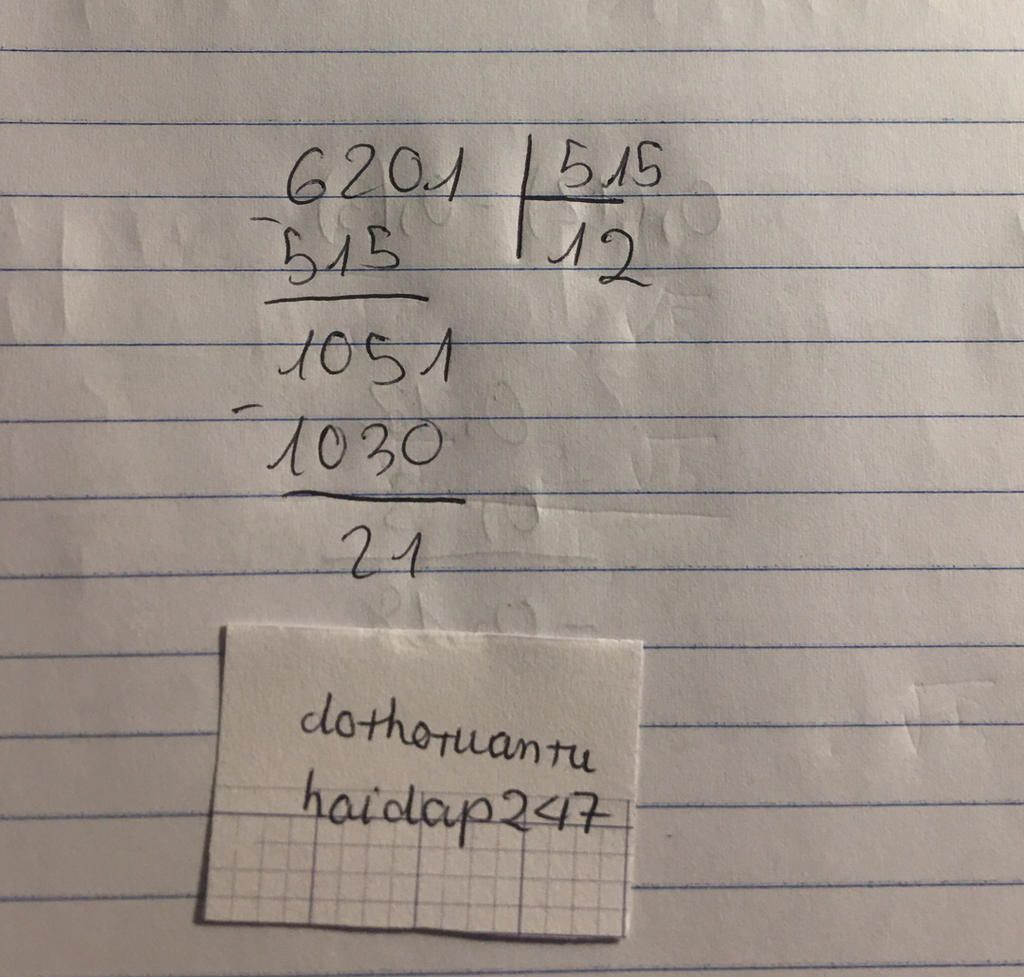 6201 515
- 515 12
1051
- 1030
21
dothotuantu
haidap247